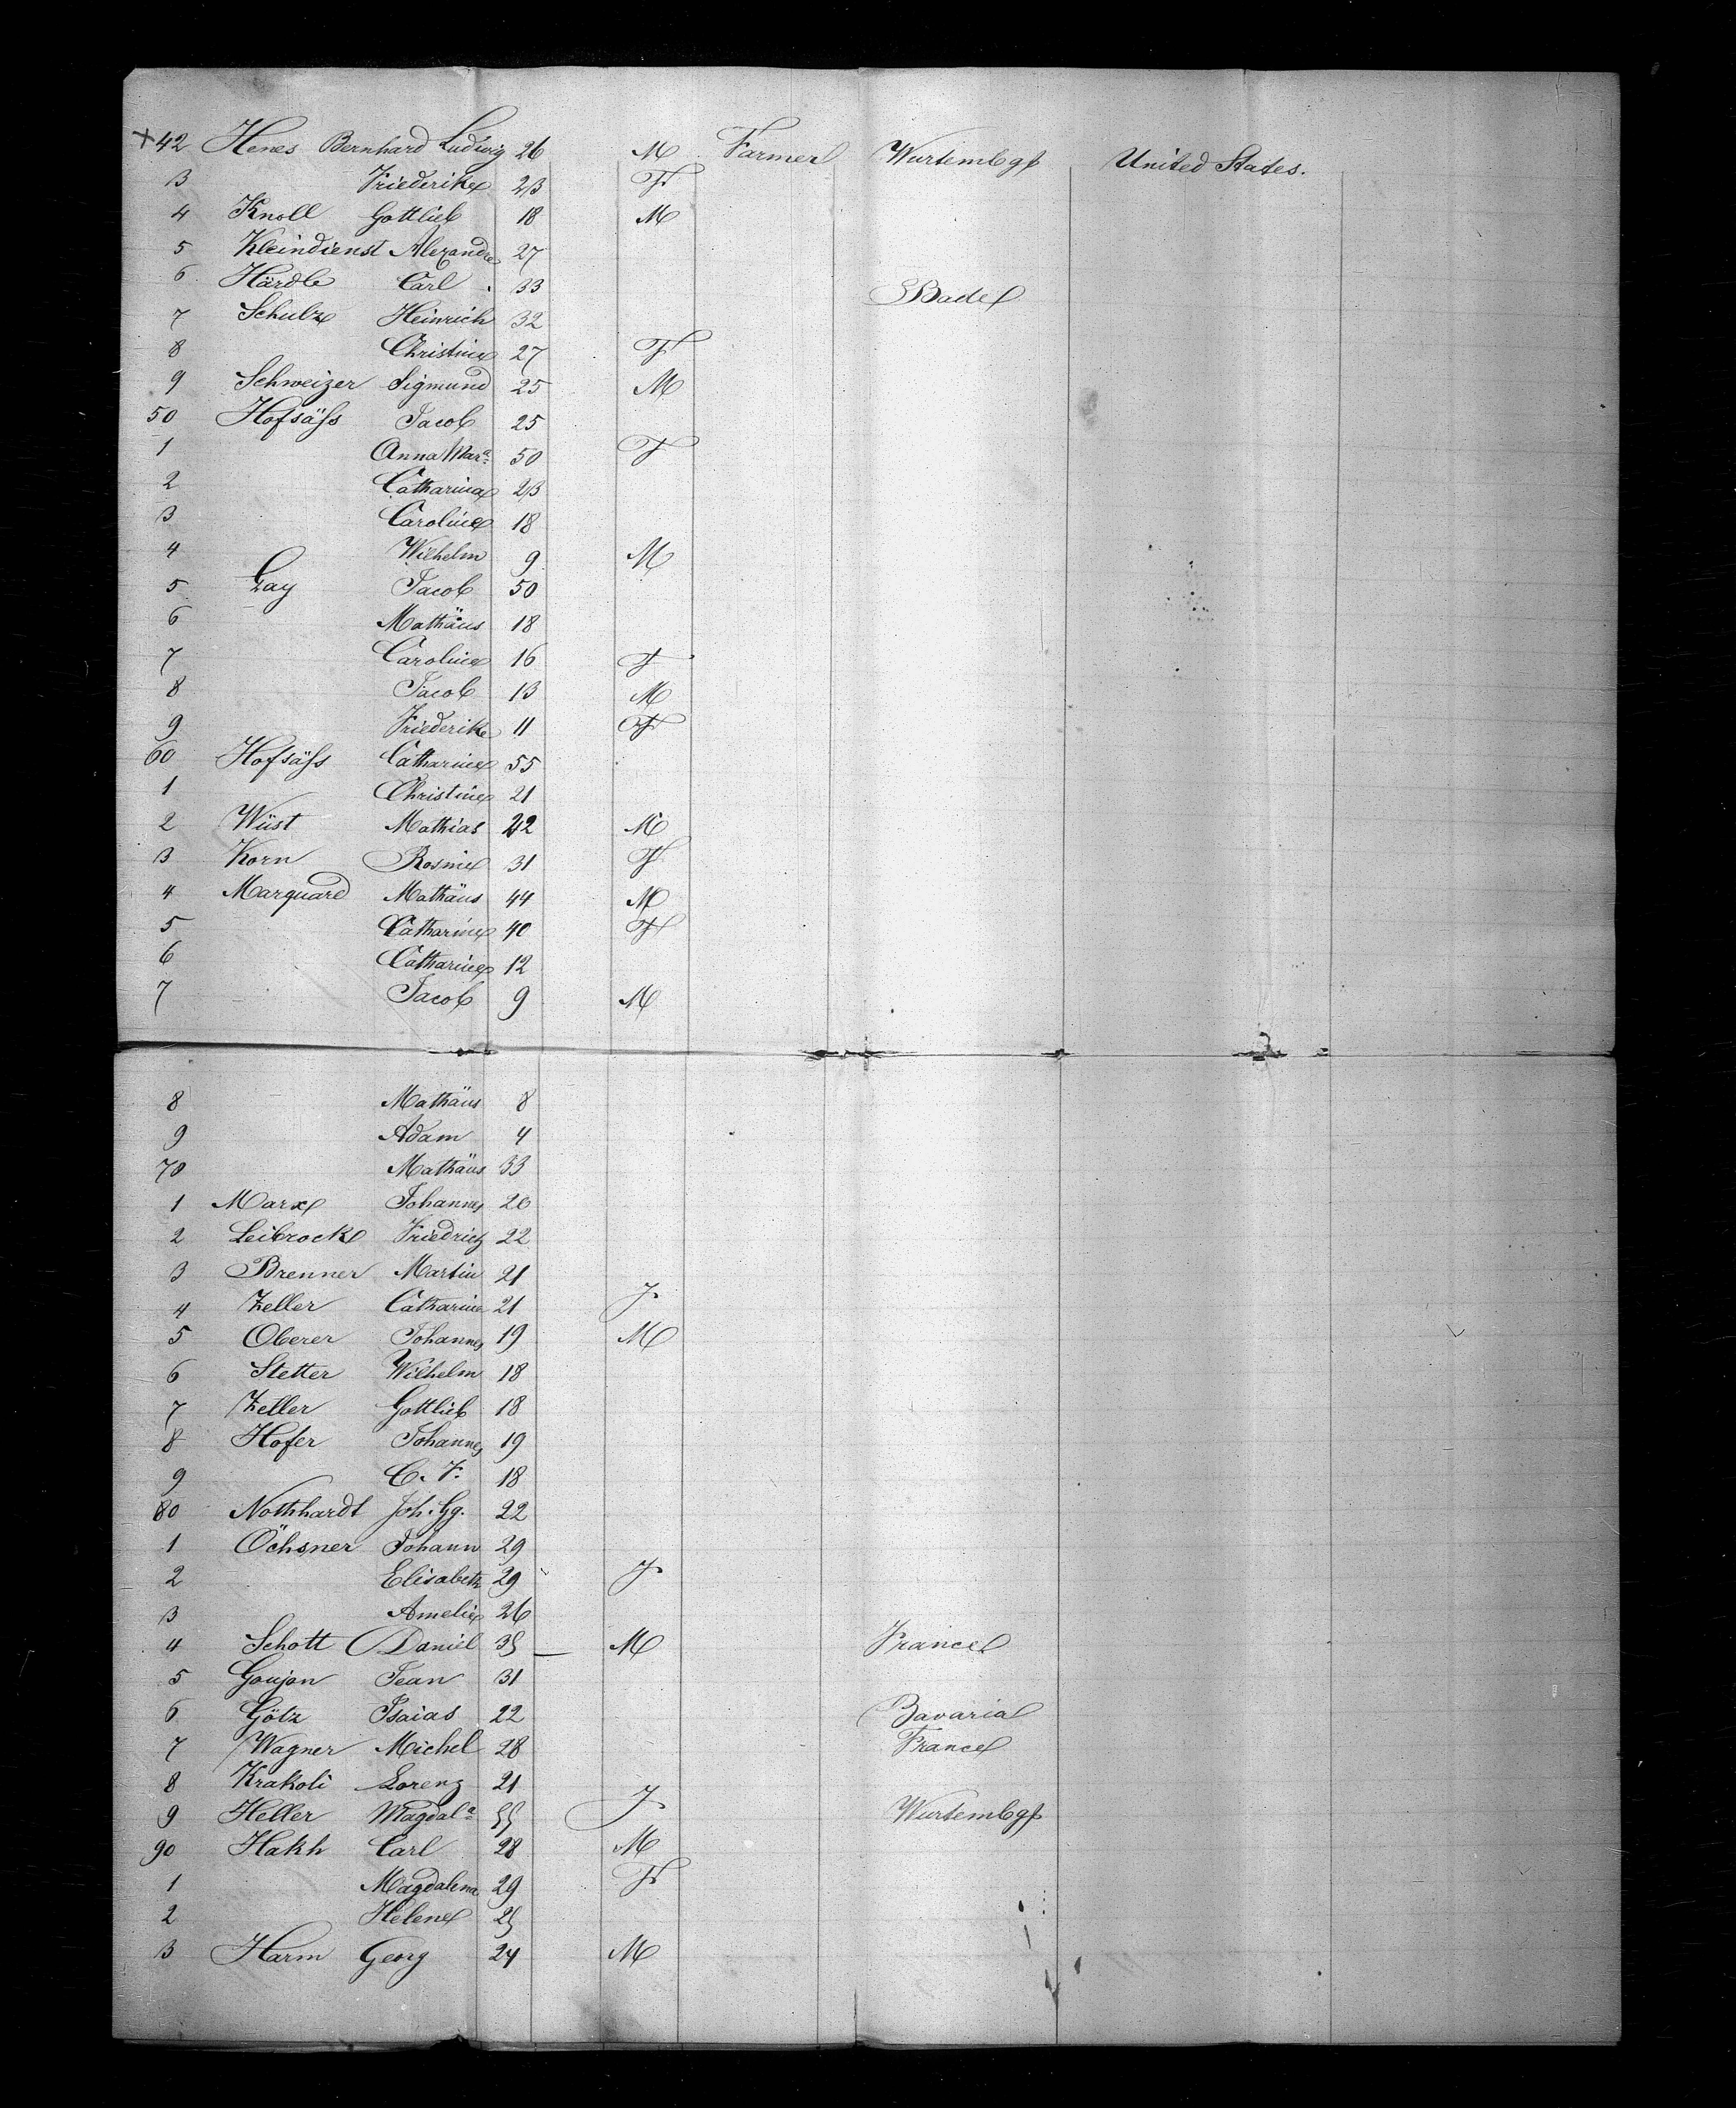 +42 Henes Bernhard Ludwig 26 M Farmer Wurtembg United States.
3 Friederike 23 F
4 Knoll Gottlieb 18 M
5 Kleindienst Alexander 27
6 Härdle Carl 33 Baden
7 Schulze Heinrich 32
8 Christine 27 F
9 Schweizer Sigmund 25 M
50 Hofsäſs Jacob 25
1 Anna Mara 50 F
2 Catharina 23
3 Caroline 18
4 Wilhelm 9 M
5 Gay Jacob 50
6 Mathäus 18
7 Caroline 16 F
8 Jacob 13 M
9 Friederike 11 F
60 Hofsäſs Catharine 55
1 Christine 21
2 Wüst Mathias 22 M
3 Korn Rosine 31 F
4 Marquard Mathäus 44 M
5 Catharine 40 F
6 Catharine 12
7 Jacob 9 M
8 Mathäus 8
9 Adam 4
70 Mathäus 33
1 Marx Johannes 20
2 Leibrock Friedrich 22
3 Brenner Martin 21
4 Zeller Catharine 21 F
5 Oberer Johannes 19 M
6 Stetter Wilhelm 18
7 Zeller Gottlieb 18
8 Hofer Johannes 19
9 C. F. 18
80 Nothhardt Joh. Gg. 22
1 Öchsner Johann 29
2 Elisabeth 29 F
3 Amelie 26
4 Schott Daniel 35 — M France
5 Goujon Jean 31
6 Götz Isaias 22 Bavaria
7 Wagner Michel 28 France
8 Krakoli Lorenz 21
9 Heller Magdala 55 F Wurtembg
90 Hakh Carl 28 M
1 Magdalena 29 F
2 Helene 25
3 Harm Georg 24 M